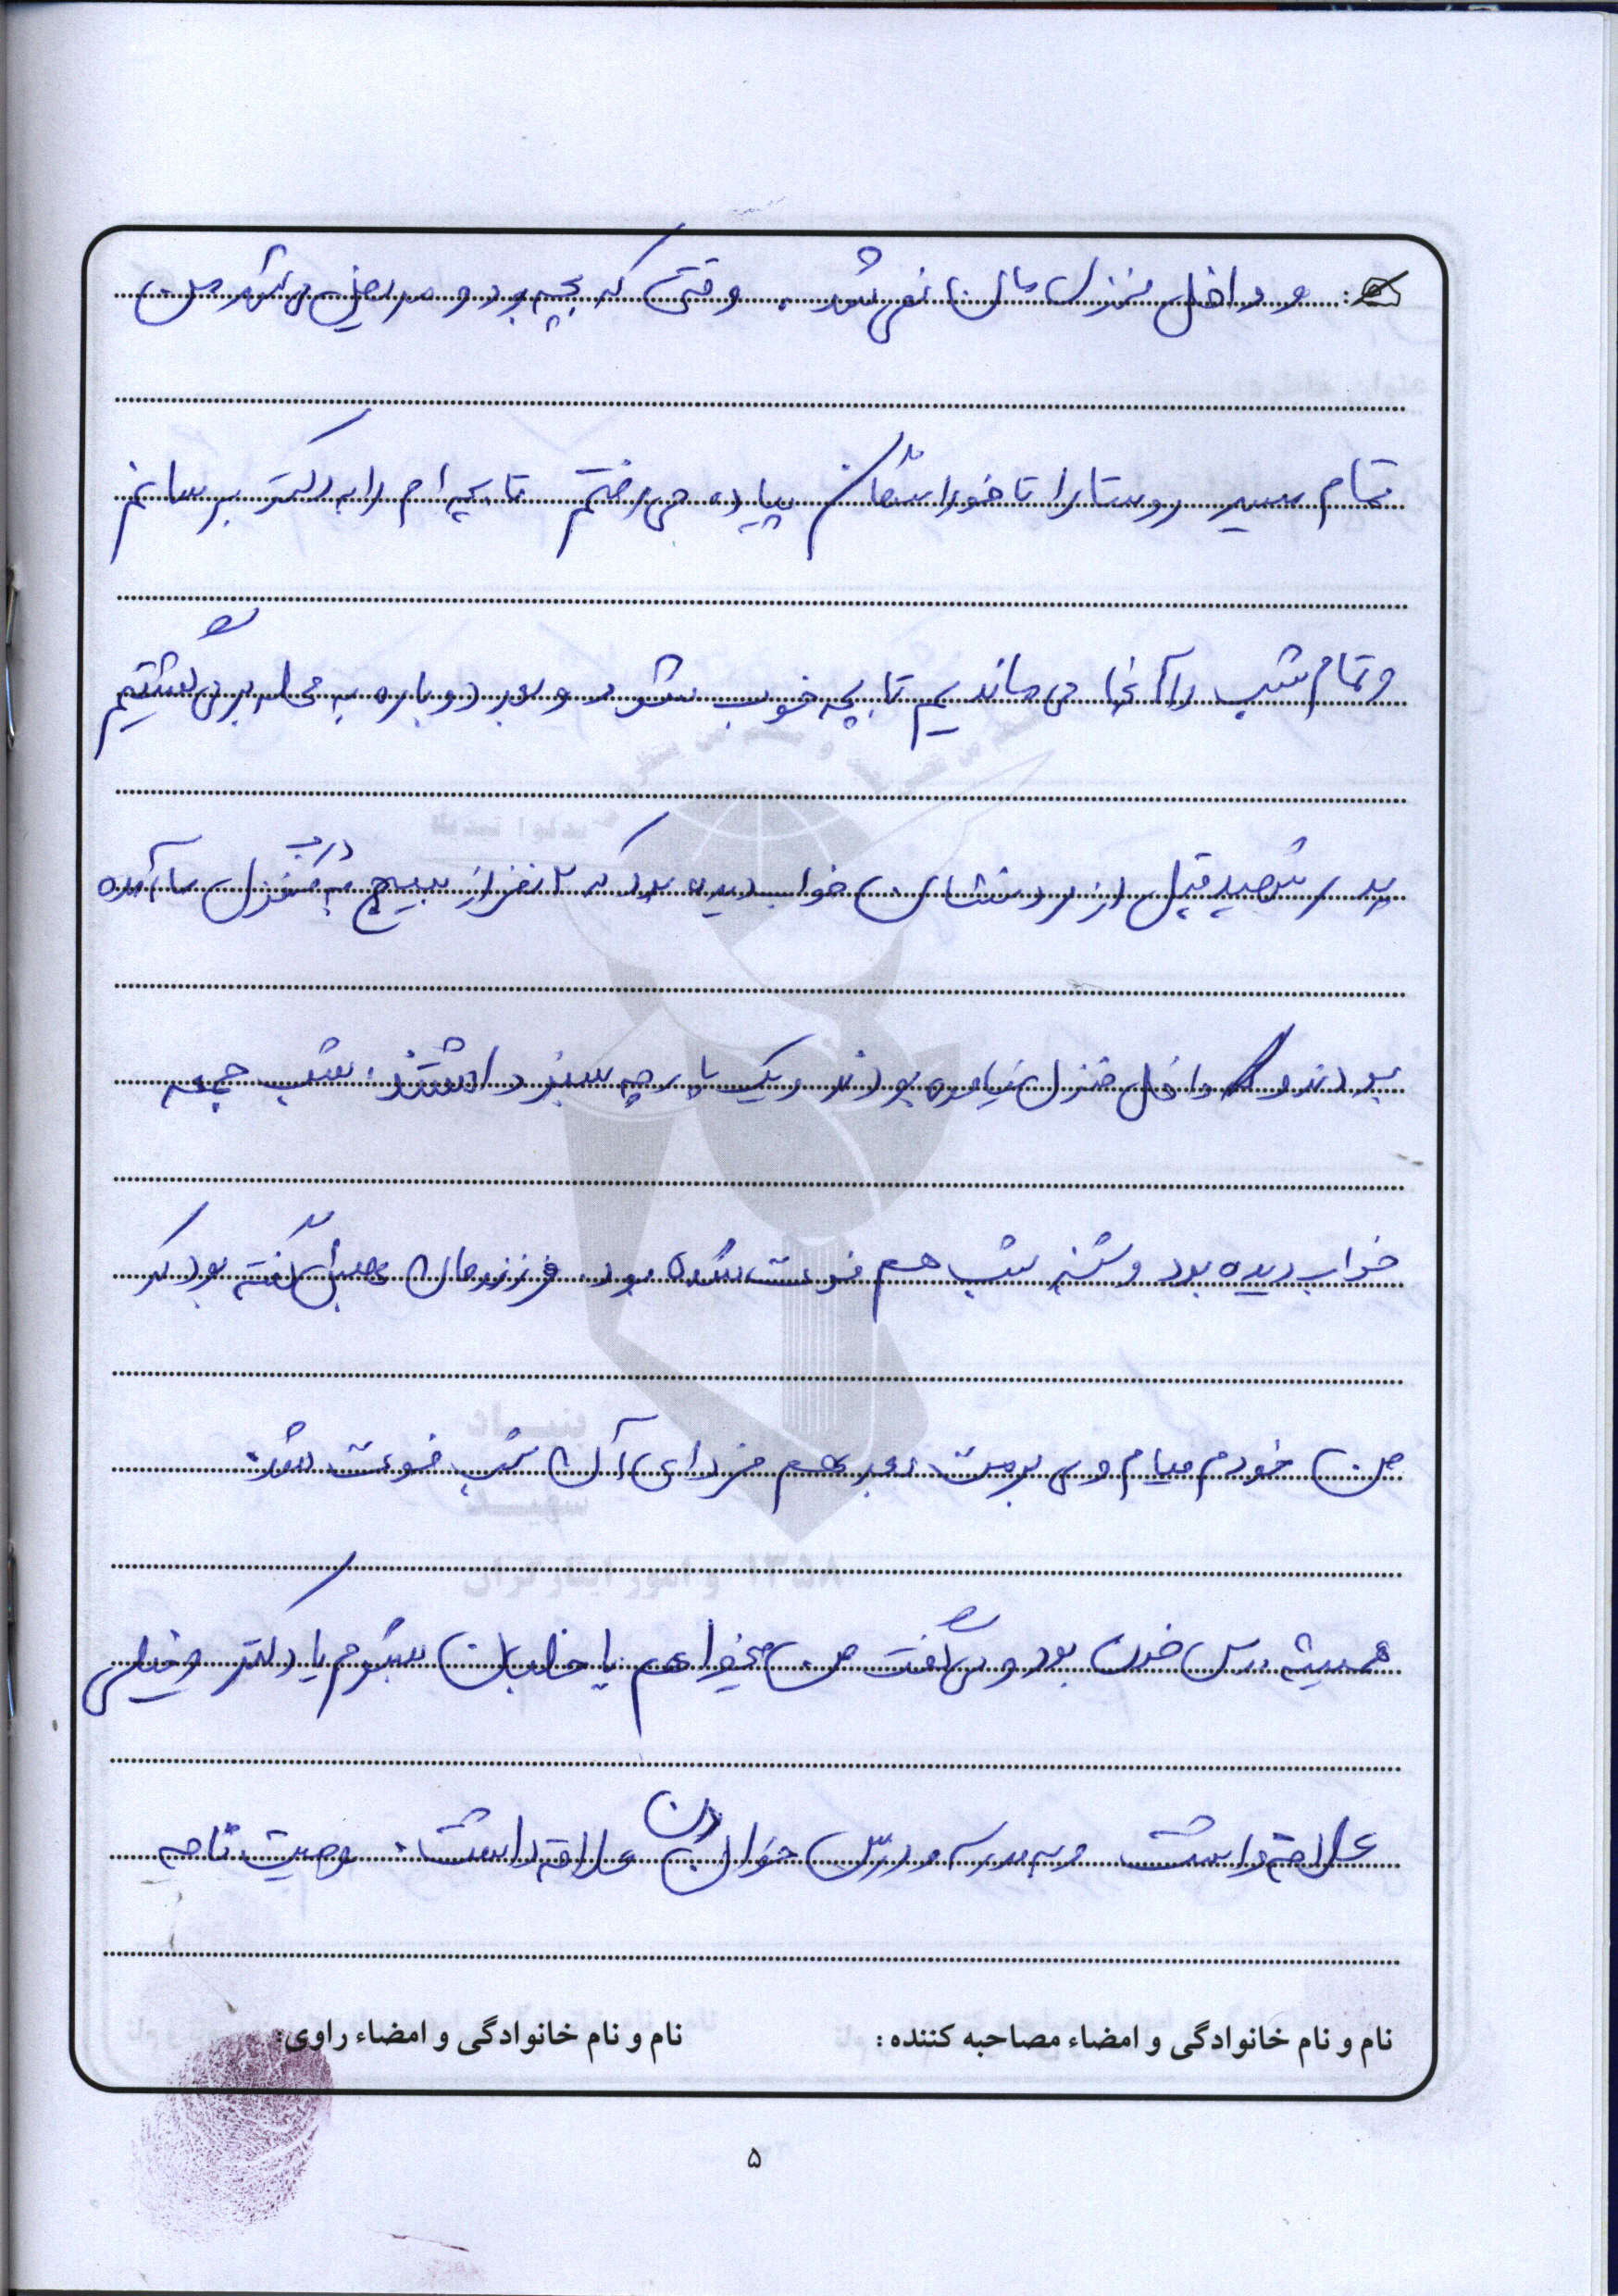 و داخل منزل مان نمی شد. وقتی که بچه بود و مریض می شد من
تمام مسیر روستا را تا پیاده می رفتم تا بچه ام را به دکتر برسانم
و تمام شب را آنجا می ماندیم تا بچه خوب بشود و بعد دوباره به محله برمی گشتیم
پدر شهید قبل از خواب دیده بود که ۲ نفر از بسیج به درب منزل ما آمده
بودند و داخل منزل نیامده بودند و یک پارچه سبز داشتند. شب جمعه
خواب دیده بود و شنبه شب هم فوت شده بود. فرزندمان بهش گفته بود که
من خودم میام می برمت و بعد هم فردای آن شب فوت شد.
همیشه درس خون بود و می گفت من میخواهم یا خلبان بشوم یا دکتر و خیلی
علاقه داشت و به مدرسه و درس خواندن علاقه داشت. وصیت نامه
نام و نام خانوادگی و امضاء مصاحبه کننده :
نام و نام خانوادگی و امضاء راوی:
۵